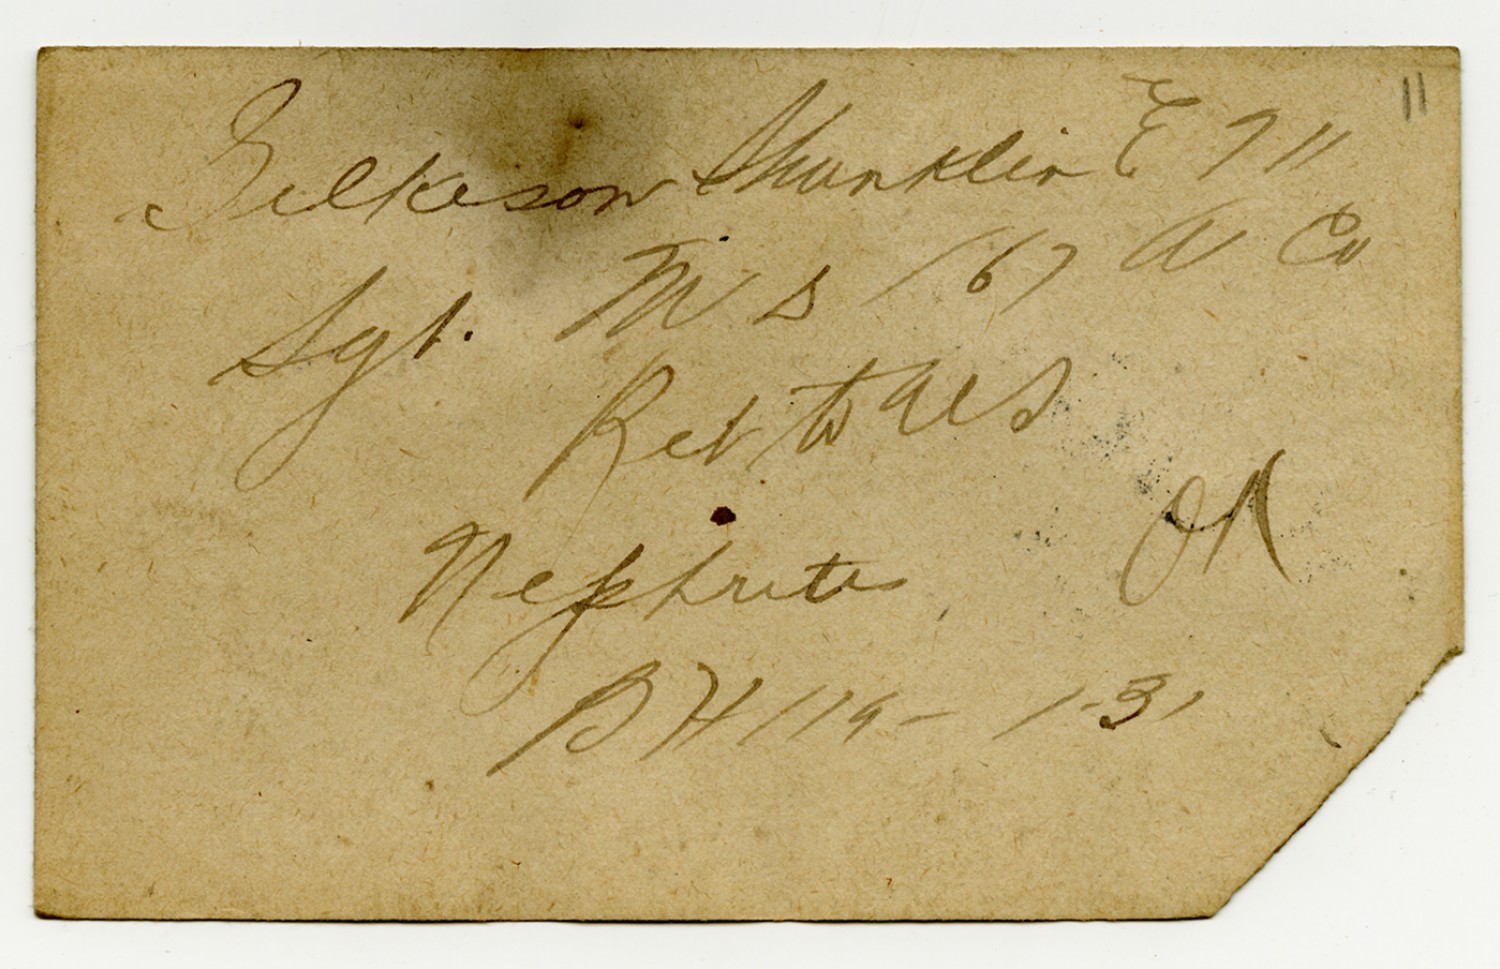 11
Gilkeson Shunklin E 711
Sgt. M S 167 A Co
Ret to U S
Nephritis OK
B H 119 - 1-31